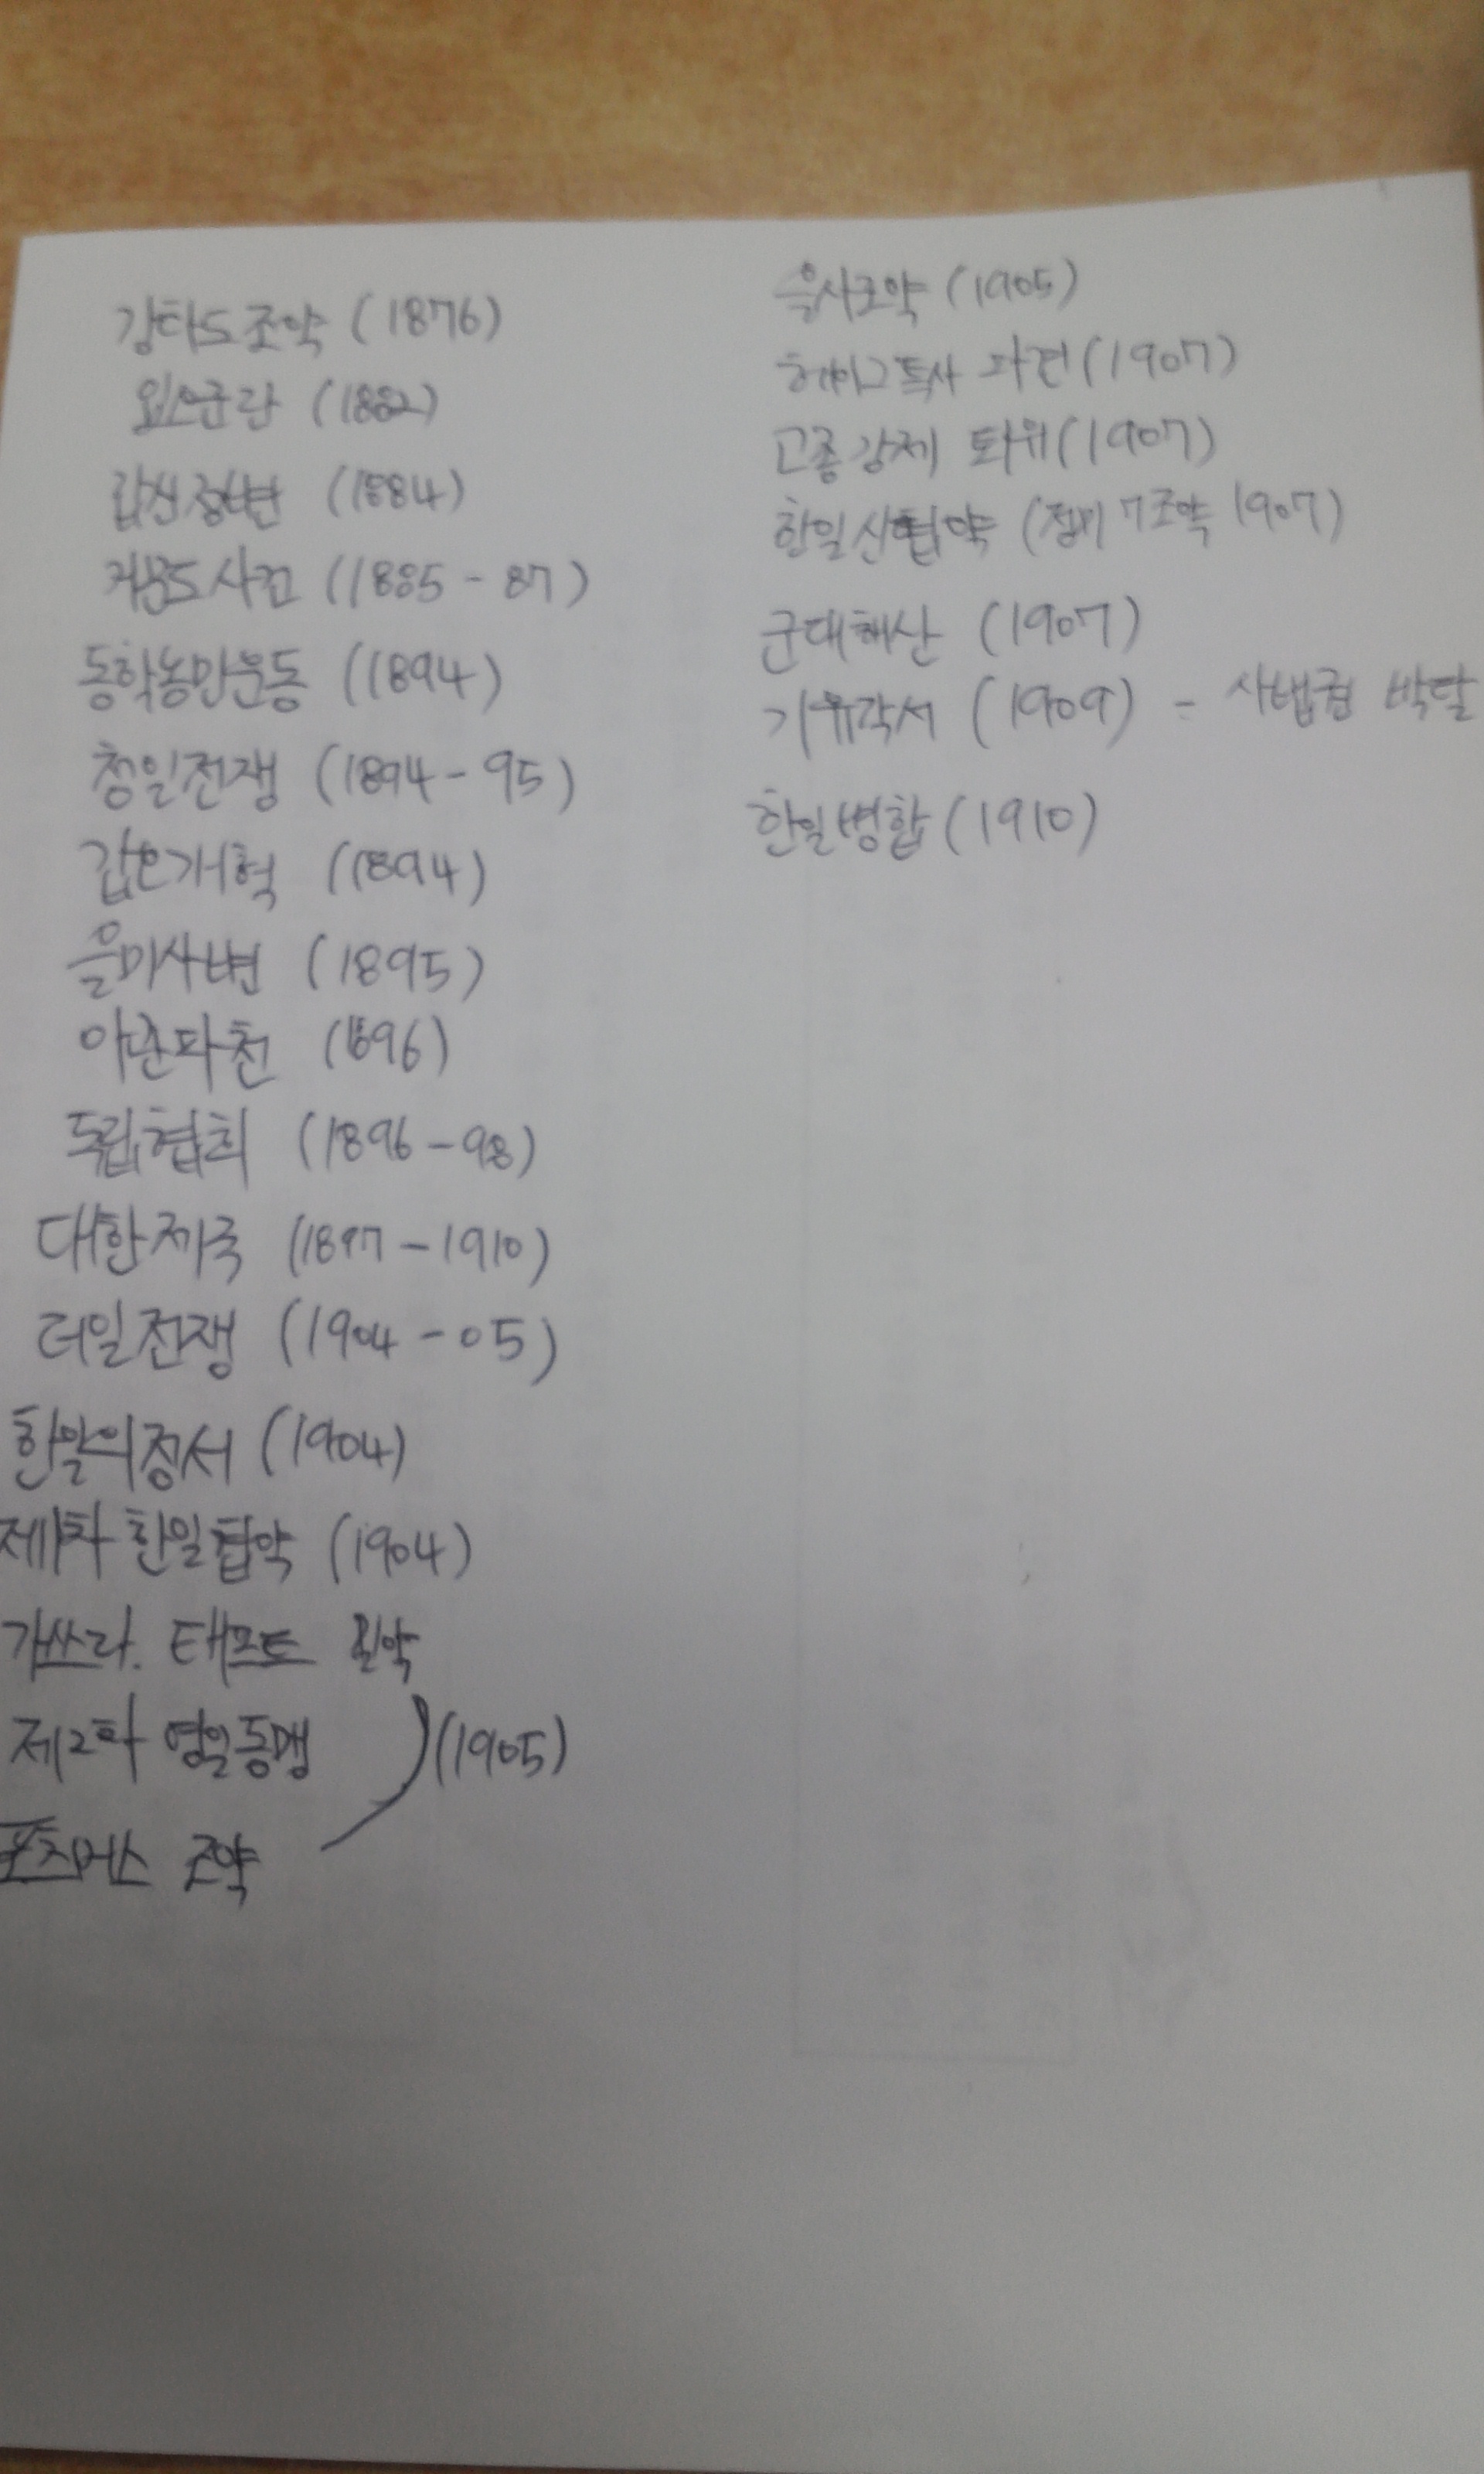 강화도 조약 (1876)
임오군란 (1882)
갑신정변 (1884)
거문도 사건 (1885-87)
동학농민운동 (1894)
청일전쟁 (1894-95)
갑오개혁 (1894)
을미사변 (1895)
아관파천 (1896)
독립협회 (1896-98)
대한제국 (1897-1910)
러일전쟁 (1904-05)
한일의정서 (1904)
제1차 한일협약 (1904)
가쓰라. 태프트 밀약
제2차 영일동맹 (1905)
포츠머스 조약
을사조약 (1905)
헤이그 특사 파견 (1907)
고종강제 퇴위 (1907)
한일신협약 (정미 7조약 1907)
군대해산 (1907)
기유각서 (1909) - 사법권 박탈
한일병합 (1910)